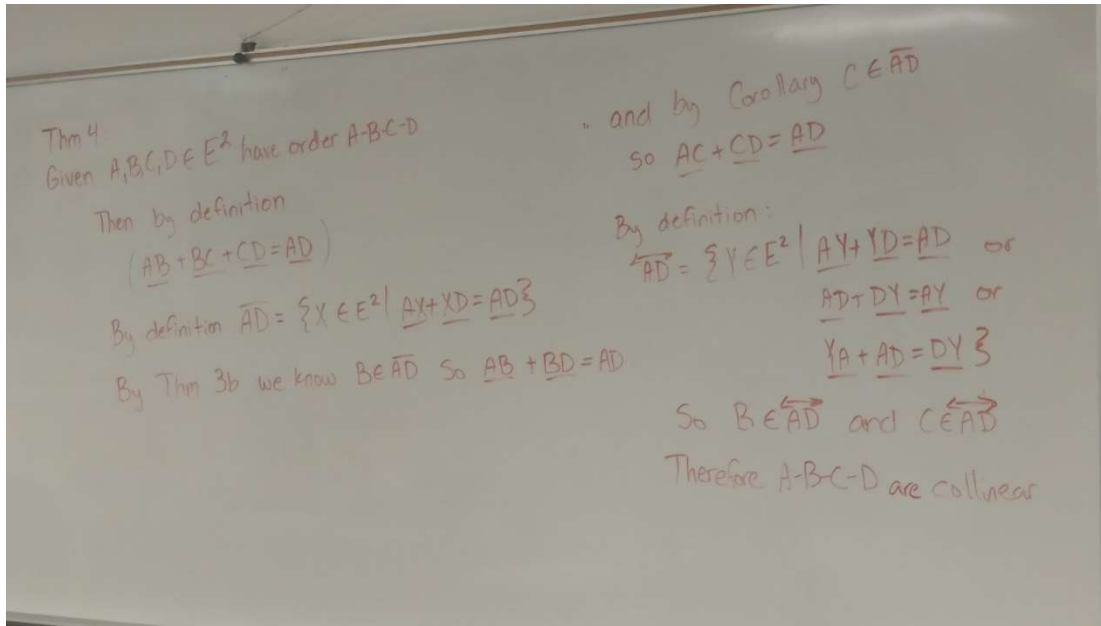 Thm 4
Given A,B,C,D ∈ E² have order A-B-C-D
Then by definition
(A̲B̲ + B̲C̲ + C̲D̲ = A̲D̲)
By definition A̅D̅ = {X ∈ E² | A̲X̲ + X̲D̲ = A̲D̲}
By Thm 3b we know B ∈ A̅D̅ So A̲B̲ + B̲D̲ = AD
and by Corollary C ∈ A̅D̅
so A̲C̲ + C̲D̲ = A̲D̲
By definition:
\overleftrightarrow{AD} = {Y ∈ E² | A̲Y̲ + Y̲D̲ = A̲D̲ or
A̲D̲ + D̲Y̲ = A̲Y̲ or
Y̲A̲ + A̲D̲ = D̲Y̲}
So B ∈ \overleftrightarrow{AD} and C ∈ \overleftrightarrow{AD}
Therefore A-B-C-D are collinear